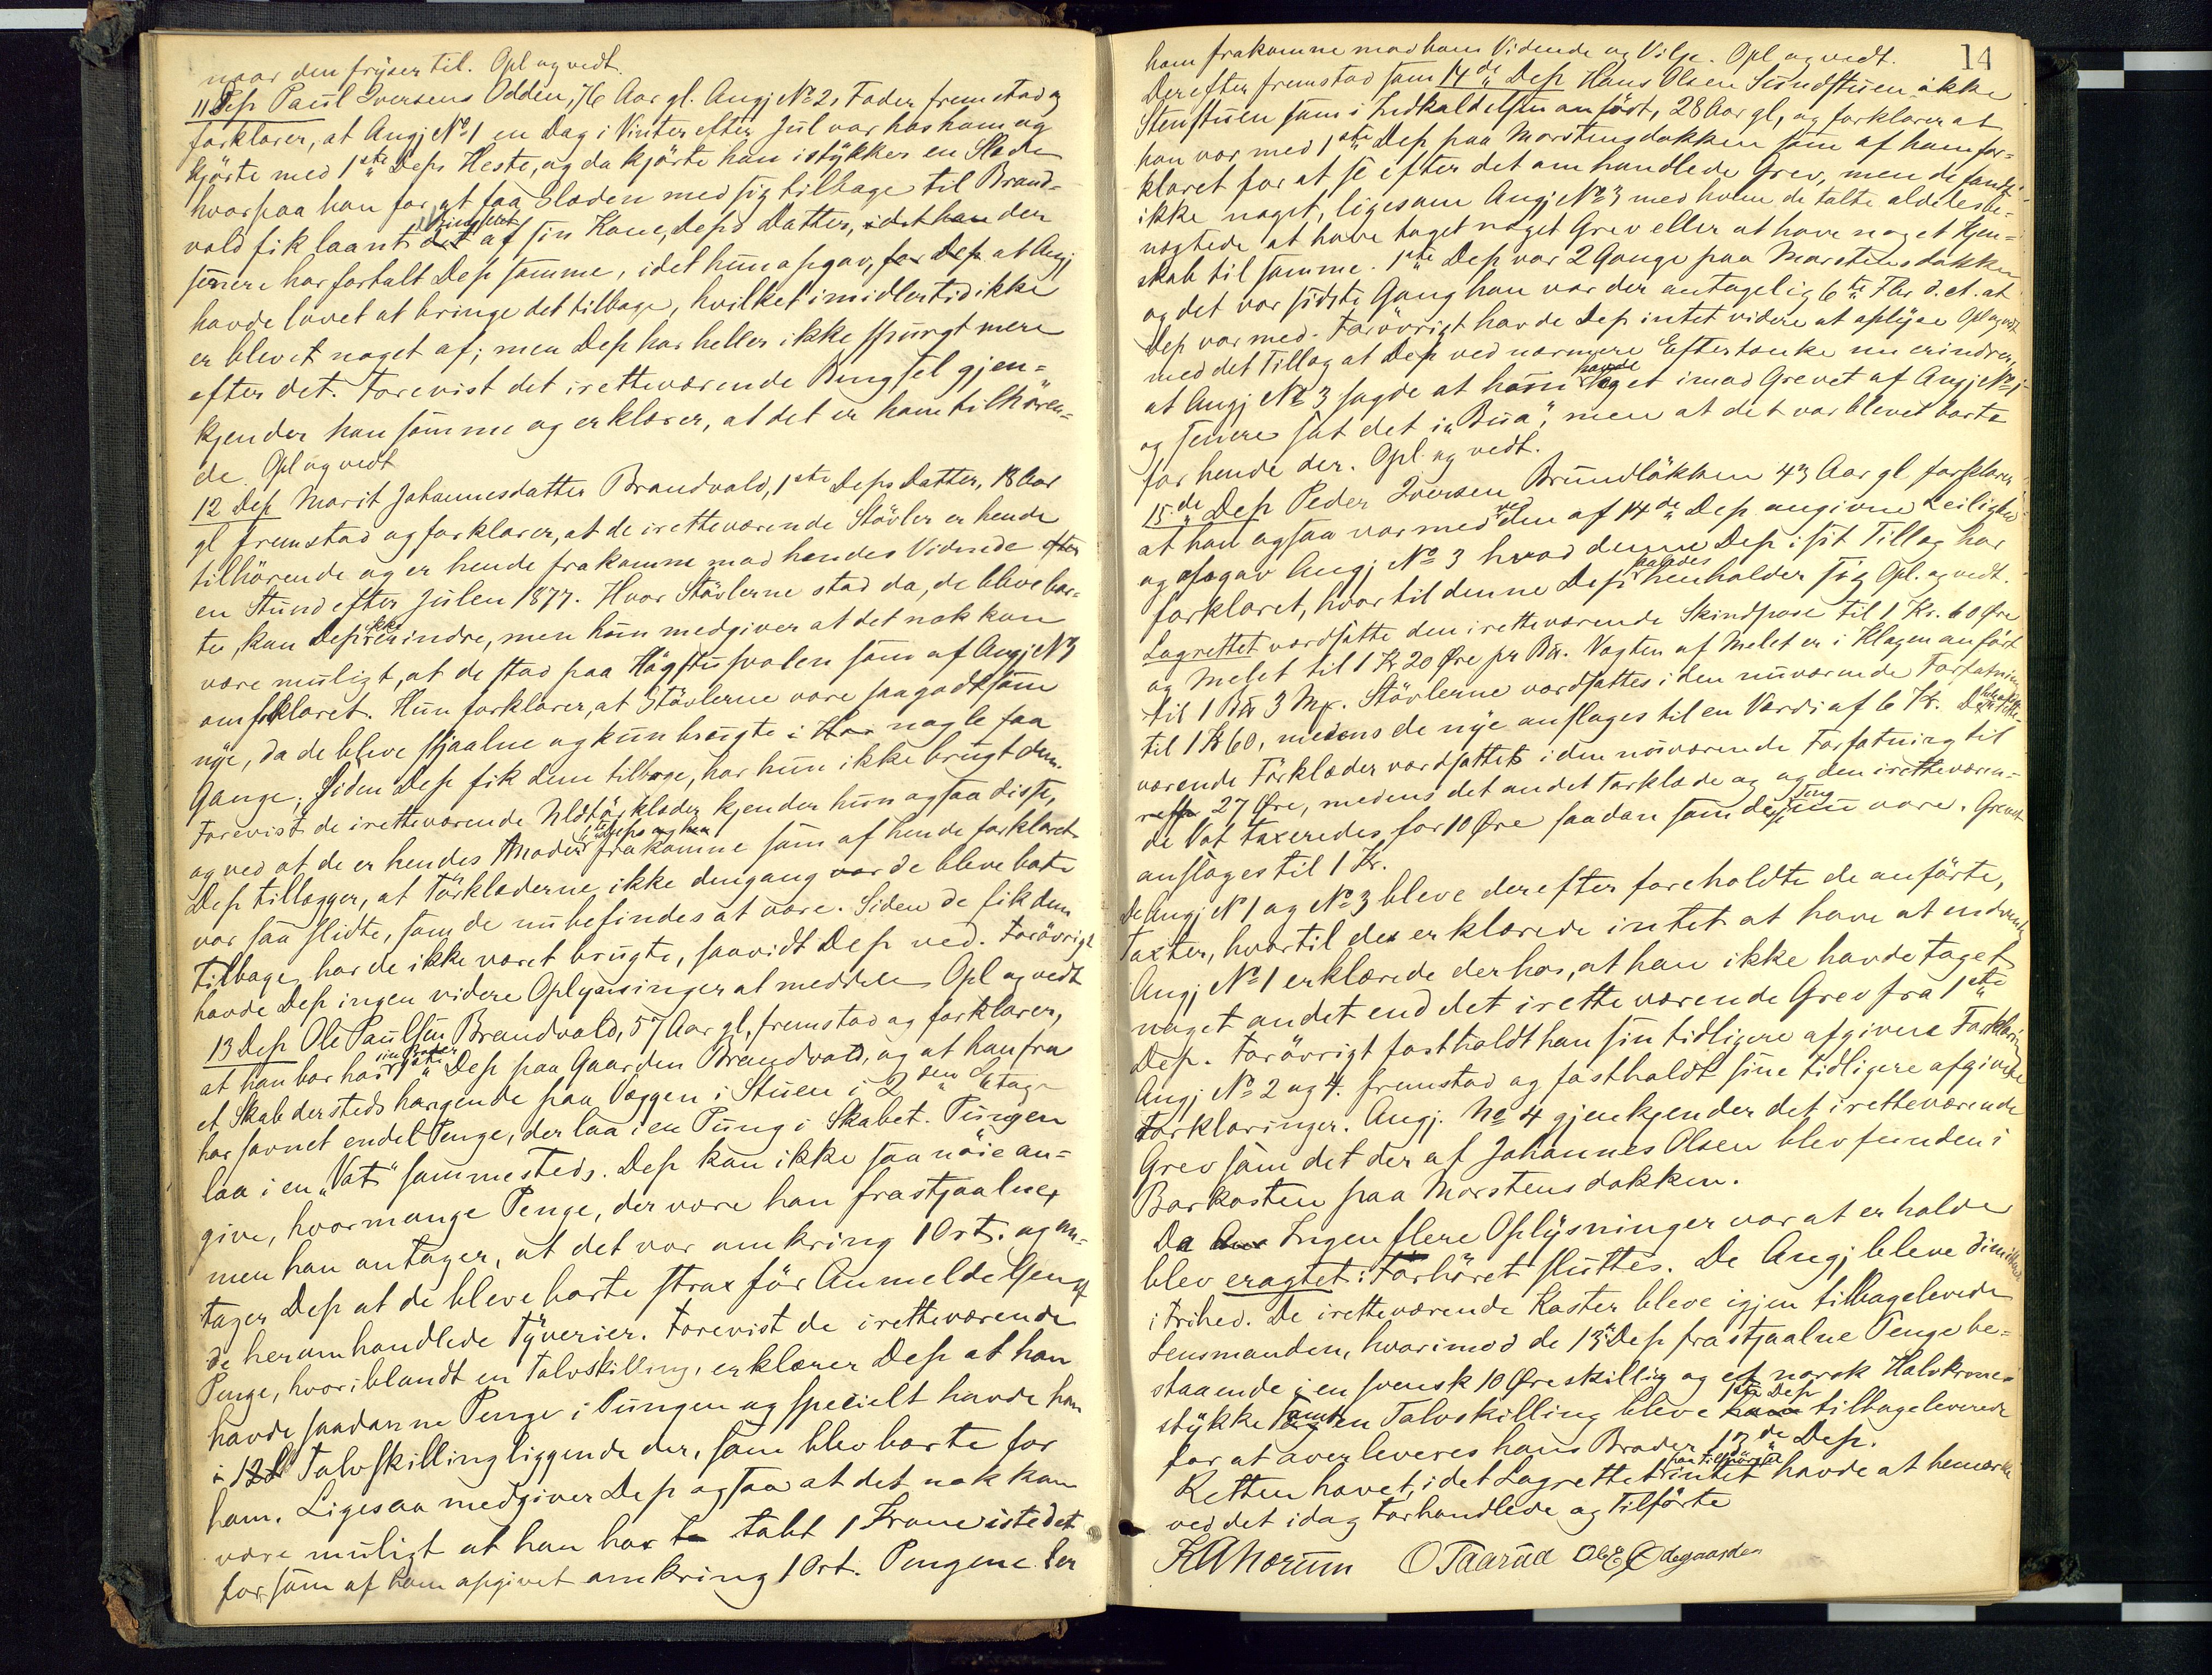 naar den fryser til. Opl og vedt.
11 Dep Paul Iversens Odden, 76 Aar gl. Angj No 2, Fader fremstod og
forklarer, at Angj No 1 en Dag i Vinter efter Jul var hos ham og
kjörte med 1ste Deps Heste, og da kjörte han istykker en Slæde
hvorpaa han for at faa Slæden med sig tilbage til Brand-
vold fik laant det Bingsel af sin Kone, Deps Datter, idet han den
senere har fortalt Dep samme, idet hun opgav, for Dep at Angj
havde lovet at bringe det tilbage, hvilket imidlertid ikke
er blevet noget af; men Dep har heller ikke spurgt mere
efter det. Forevist det iretteværende Bingsel gjen-
kjender han samme og erklærer, at det er ham tilhören-
de. Opl og vedt
12 Dep Marit Johannesdatter Brandvold, 1ste Deps Datter, 18 Aar
gl fremstod og forklarer, at de iretteværende Stövler er hende
tilhörende og er hende frakomne mod hendes Vidende efter
en Stund efter Julen 1877. Hvor Stövlerne stod da, de bleve bor-
te, kan Dep ikke erindre, men hun medgiver at det nok kan
være muligt, at de stod paa Högstusvalen som af Angj No 3
omforklaret. Hun forklarer, at Stövlerne vare saagodtsom
nye, da de bleve stjaalne og kun brugte i Har nogle faa
Gange; siden Dep fik dem tilbage, har hun ikke brugt dem.
Forevist de iretteværende Uldtörklæder kjender hun ogsaa disse,
og ved at de er hendes Moder frakomne som af hende forklaret
Dep tillægger, at Törklæderne ikke dengang var de bleve borte
var saa slidte, som de nu befindes at være. Siden de fik dem
tilbage har de ikke været brugte, saavidt Dep ved. Forövrigt
havde Dep ingen videre Oplysninger at meddele Opl og vedt
13 Dep Ole Paulsen Brandvold, 57 Aar gl, fremstod og forklarer,
at han bor hos sin Broder 1ste Dep paa Gaarden Brandvold, og at han fra
et Skab dersteds hængende paa Væggen i Stuen i 2den Etage
har savnet endel Penge, der laa i en Pung i Skabet. Pungen
laa i en „Vot“ sammesteds. Dep kan ikke saa nöie an-
give, hvormange Penge, der vare han frastjaalne,
men han antager, at det var omkring 1 Ort. og an-
tager Dep at de bleve borte strax för Anmeldelsen af
de heromhandlede Tyverier. Forevist de iretteværende
Penge, hvoriblandt en Tolvskilling, erklærer Dep at han
havde saadanne Penge i Pungen og specielt havde han
i 12 Tolvskilling liggende der, som blev borte for
ham. Ligesaa medgiver Dep ogsaa at det nok kan
være muligt at han har tabt 1 Krone istedet
for, som af ham opgivet omkring 1 Ort. Pengene er
14
ham frakomne mod hans Vidende og Vilje. Opl og vedt.
Derefter fremstod som 14de Dep Hans Olsen Sundstuen ikke
Stenstuen som i Indkaldelsen anfört, 28 Aar gl, og forklarer at
han var med 1ste Dep paa Morstensdokken som af ham for-
klaret for at se efter det omhandlede Grev, men de fandt
ikke noget, ligesom Angj No 3 med hvem de talte aldeles be-
nægtede at have taget noget Grev eller at have noget Kjen-
skab til samme. 1ste Dep var 2 Gange paa Morstensdokken
og det var sidste Gang han var der antagelig 6te Fbr d. A. at
Dep var med. Forövrigt havde Dep intet videre at oplyse Opl og vedt
med det Tillæg at Dep ved nærmere Eftertanke nu erindrer,
at Angj No 3 sagde at hun havde taget imod Grevet af Angj No 1
og senere sat det i „Bua“, men at det var blevet borte
for hende der. Opl. og vedt.
15de Dep Peder Iversen Brundlökken 43 Aar gl forklarer
at han ogsaa var med ved den af 14de Dep angivne Leilighed
og opgav Angj. No 3 hvad denne Dep i sit Tillæg har
forklaret, hvortil denne Dep saaledes henholder sig Opl. og vedt.
Lagrettet værdsatte den iretteværende Skindpose til 1 Kr. 60 Øre
og Melet til 1 Kr 20 Øre pr Bx. Vægten af Melet er i Klagen anfört
til 1 Bx 3 Mk. Stövlerne værdsattes i den nuværende Forfatning
til 1 Kr 60, medens de nye anslages til en Værdi af 6 Kr. De irette-
værende Törklæder værdsattes i den nuværende Forfatning til
27 Øre, medens det andet Törklæde og den iretteværen-
de Vot taxeredes for 10 Øre saadan som de nu vare. Grevet
anslages til 1 Kr.
De Angj No 1 og No 3 bleve derefter foreholdte de anförte,
Taxter, hvortil de erklærede intet at have at indvende
Angj No 1 erklærede derhos, at han ikke havde taget
noget andet end det iretteværende Grev fra 1ste
Dep. Forövrigt fastholdt han sin tidligere afgivne Forklaring
Angj No 2 og 4. fremstod og fastholdt sine tidligere afgivne
Forklaringer. Angj. No 4 gjenkjender det iretteværende
Grev som det der af Johannes Olsen blev funden i
Barkosten paa Morstensdokken.
Da Ingen flere Oplysninger var at erholde
blev eragtet: Forhöret sluttes. De Angj bleve dimitterede
i Frihed. De iretteværende Koster bleve igjen tilbageleverede
Lensmanden, hvorimod de 13 Dep frastjaalne Penge be-
staaende i en svensk 10 Øreskilling og et norsk Halvkrone-
stykke samt en Tolvskilling bleve 1ste Dep tilbageleverede
for at overleveres hans Broder 13de Dep.
Retten hævet, idet Lagrettet paa Tilspörgsel intet havde at bemærke
ved det idag Forhandlede og Tilförte
KA Norum O Taarud Ole E Ødegaarden